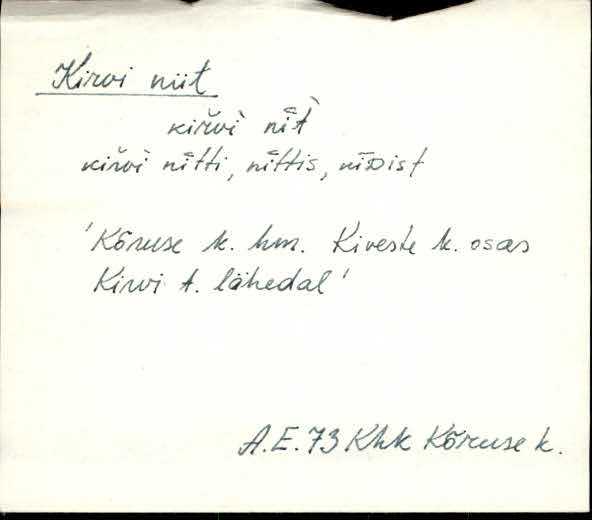 Kirvi niit
kiřvì nīt̀
kiřvì nītti, nīttis, nīᴅist
'Kõruse k. hm. Kiveste k. osas
Kirvi t. lähedal'
A.E. 73 Khk Kõruse k.